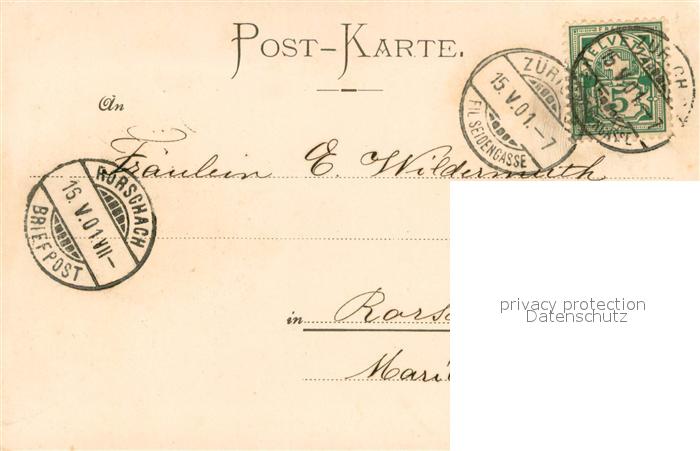 POST-KARTE.
An
ZÜRICH
15.V.01.-7
FIL. SEIDENGASSE
HELVETIA
5
Fräulein E. Wildermuth
RORSCHACH
15.V.01.VII-
BRIEFPOST
privacy protection
Datenschutz
in Rors
Mari